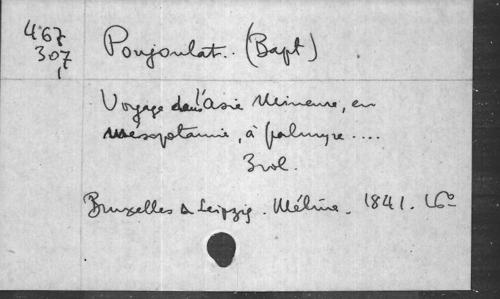 467
307
1
Poujoulat. (Bapt)
Voyage dans l'asie Mineure, en
mésopotamie, à palmyre ....
3 vol.
Bruxelles & Leipzig. Méline. 1841. 16º